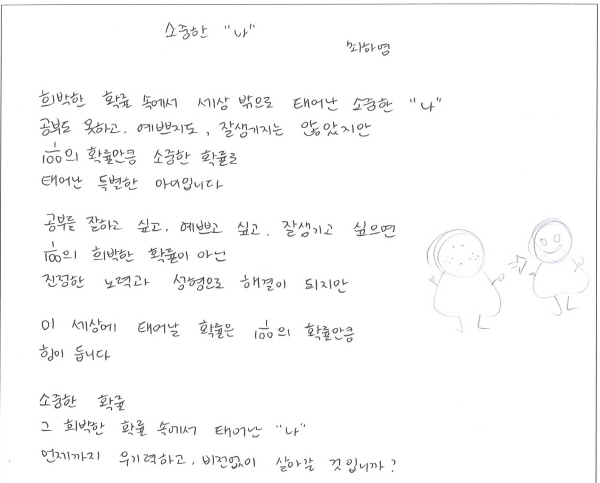 소중한 "나"
최하영
희박한 확률 속에서 세상 밖으로 태어난 소중한 "나"
공부도 못하고, 예쁘지도, 잘생기지는 않았지만
1/100의 확률만큼 소중한 확률로
태어난 특별한 아이입니다
공부를 잘하고 싶고, 예쁘고 싶고, 잘생기고 싶으면
1/100의 희박한 확률이 아닌
진정한 노력과 성형으로 해결이 되지만
이 세상에 태어날 확률은 1/100의 확률만큼
힘이 듭니다
소중한 확률
그 희박한 확률 속에서 태어난 "나"
언제까지 무기력하고, 비전없이 살아갈 것입니까?